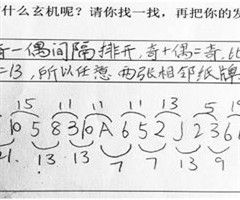 什么玄机呢？请你找一找，再把你的发
奇一偶间隔排开，奇+偶=奇.
=13,所以任意两张相邻纸牌
15 11 11 13 5
10 5 8 3 10 A 6 5 2 J 2 3 6
13 13 7 7 13 9